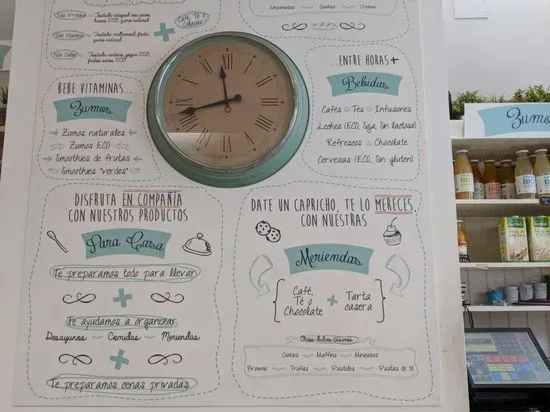 Café, Té o
Cacaolat
Empanadas Quiches Cremas
BEBE VITAMINAS...
Zumos
Zumos naturales
Zumos ECO
Smoothies de frutas
Smoothies "verdes"
...ENTRE HORAS+
Bebidas
Cafés Tés Infusiones
Leches (ECO, Soja, Sin lactosa)
Refrescos Chocolate
Cervezas (ECO, Sin gluten)
DISFRUTA EN COMPAÑÍA
CON NUESTROS PRODUCTOS
Para Casa
Te preparamos todo para llevar
+
Te ayudamos a organizar
Desayunos Comidas Meriendas
+
Te preparamos cenas privadas
DATE UN CAPRICHO, TE LO MERECES,
CON NUESTRAS
Meriendas
Café,
Té o
Chocolate
+
Tarta
casera
Otros dulces caseros
Cookies Muffins Minicakes
Brownie Trufas Pasteles Pastas de té
Zumo
BIO